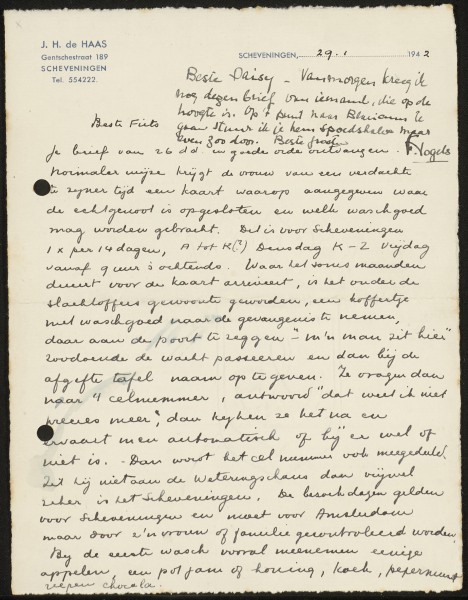 J. H. de HAAS
Gentschestraat 189
SCHEVENINGEN
Tel. 554222.
SCHEVENINGEN, 29.1 1942
Beste Daisy – Vanmorgen kreeg ik
nog dezen brief van iemand, die op de
hoogte is. Op 't punt naar te
gaan stuur ik je hem spoedshalve maar
even zoo door. Beste groeten
F. Vogels
Beste Fiets
Je brief van 26 dd. in goede orde ontvangen.
Normaler wijze krijgt de vrouw van een verdachte
te zijner tijd een kaart waarop aangegeven waar
de echtgenoot is opgesloten en welke waschgoed
mag worden gebracht. Dit is voor Scheveningen
1 x per 14 dagen, A tot K(!) Dinsdag K-Z Vrijdag
vanaf 9 uur 's ochtends. Waar het soms maanden
duurt voor de kaart arriveert, is het onder de
slachtoffers gewoonte geworden, een koffertje
met waschgoed naar de gevangenis te nemen,
daar aan de poort te zeggen "m'n man zit hier"
zoodoende de wacht passeeren en dan bij de
afgifte tafel naam op te geven. Ze vragen dan
naar 't celnummer, antwoord "dat weet ik niet
precies meer", dan kijken ze het na en
ervaart men automatisch of hij er wel of
niet is. Dan wordt het cel nummer ook meegedeeld.
Zit hij niet aan de Weteringschans dan vrijwel
zeker is het Scheveningen. De bezoekdagen gelden
voor Scheveningen en moet voor Amsterdam
maar door z'n vrouw of familie gecontroleerd worden.
Bij de eerste wasch vooral meenemen eenige
appelen, een pot jam of honing, koek, pepermunt
repen chocola.